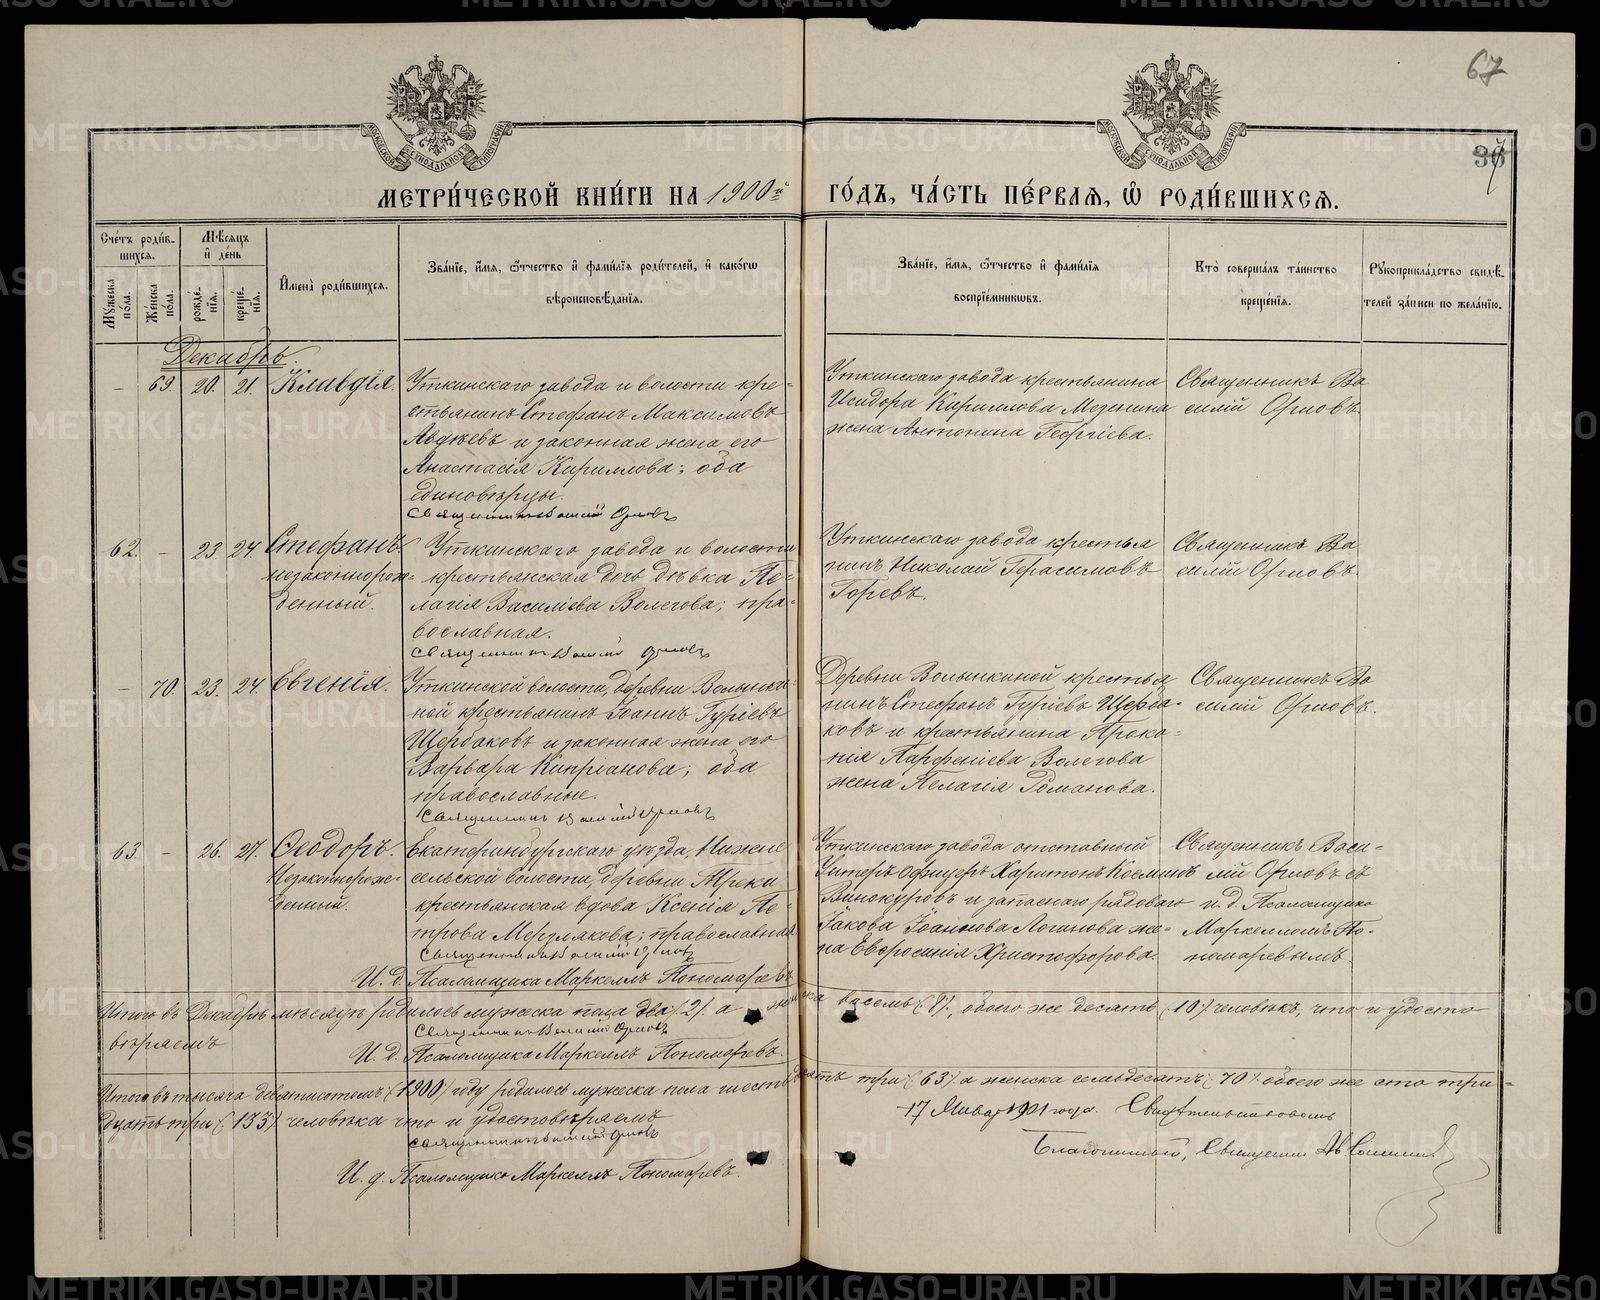 67
37
МЕТРИ́ЧЕСКОЙ КНИ́ГИ НА 1900й ГО́ДЪ, ЧА́СТЬ ПЕ́РВАЯ, Ѽ РОДИ́ВШИХСЯ.
Сче́тъ роди́в-
шихся.
Мꙋжеска по́ла.
Же́нска по́ла.
Мѣ́сяцъ
и҆ де́нь
рожде́нїѧ.
креще́нїѧ.
И҆мена̀ роди́вшихсѧ.
Зва́нїе, и҆́мѧ, ѻ҆́тчество и҆ фами́лїѧ роди́телей, и҆ како́гѡ
вѣроисповѣ́данїѧ.
Зва́нїе, и҆́мѧ, ѻ҆́тчество и҆ фами́лїѧ
воспрїе́мниковъ.
Кто̀ соверша́лъ та́инство
креще́нїѧ.
Рꙋкоприкла́дство свидѣ́-
телей за́писи по жела́нїю.
Декабрь.
- 69. 20. 21. Клавдія.
Уткинскаго завода и волости кре-
стьянинъ Стефанъ Максимовъ
Авдѣевъ и законная жена его
Анастасія Кириллова; оба
единовѣрцы.
Священникъ Василій Орловъ
Уткинскаго завода крестьянина
Исидора Кириллова Мезенина
жена Антонина Георгіева.
Священникъ Ва
силій Орловъ.
62. - 23 24 Стефанъ
незаконнорож-
денный.
Уткинскаго завода и волости
крестьянская дочь дѣвка Пе-
лагія Василіева Волегова; пра-
вославная.
Священникъ Василій Орловъ
Уткинскаго завода крестья
нинъ Николай Герасимовъ
Горевъ.
Священникъ Ва
силій Орловъ.
- 70. 23. 24 Евгенія.
Уткинской волости, деревни Волынки-
ной крестьянинъ Іоаннъ Гуріевъ
Щербаковъ и законная жена его
Варвара Кипріанова; оба
православные.
Священникъ Василій Орловъ
Деревни Волынкиной крестья
нинъ Стефанъ Гуріевъ Щерба-
ковъ и крестьянина Проко-
пія Парфеніева Волегова
жена Пелагія Романова.
Священникъ Ва
силій Орловъ.
63. - 26. 27. Ѳеодоръ.
Незаконнорож-
денный.
Екатеринбургскаго уѣзда, Нижне
сельской волости, деревни Треки
крестьянская вдова Ксенія Пе-
трова Мерзлякова; православная
Священникъ Василій Орловъ
И. д. Псаломщика Маркеллъ Пономаревъ
Уткинскаго завода отставной
Унтеръ офицеръ Харитонъ Косминъ
Винокуровъ и запаснаго рядоваго
Іакова Іоаннова Логинова же-
на Евфросинія Христофорова.
Священникъ Васи-
лій Орловъ съ
и. д. Псаломщика
Маркелломъ По-
номаревымъ.
Итого въ Декабрѣ мѣсяцѣ родилось мужеска пола два (2) а женска восемь (8), обоего же десять (10) человѣкъ, что и удосто
вѣряемъ
Священникъ Василій Орловъ
И. д. Псаломщика Маркеллъ Пономаревъ.
Итого въ тысяча девятисотомъ (1900) году родилось мужеска пола шестьдесятъ три (63) а женска семьдесятъ (70) обоего же сто три-
дцать три (133) человѣка что и удостовѣряемъ
Священникъ Василій Орловъ
И. д. Псаломщика Маркеллъ Пономаревъ.
17 Января 1901 года. Свидѣтельствовалъ
Благочинный, Священникъ
METRIKI.GASO-URAL.RU